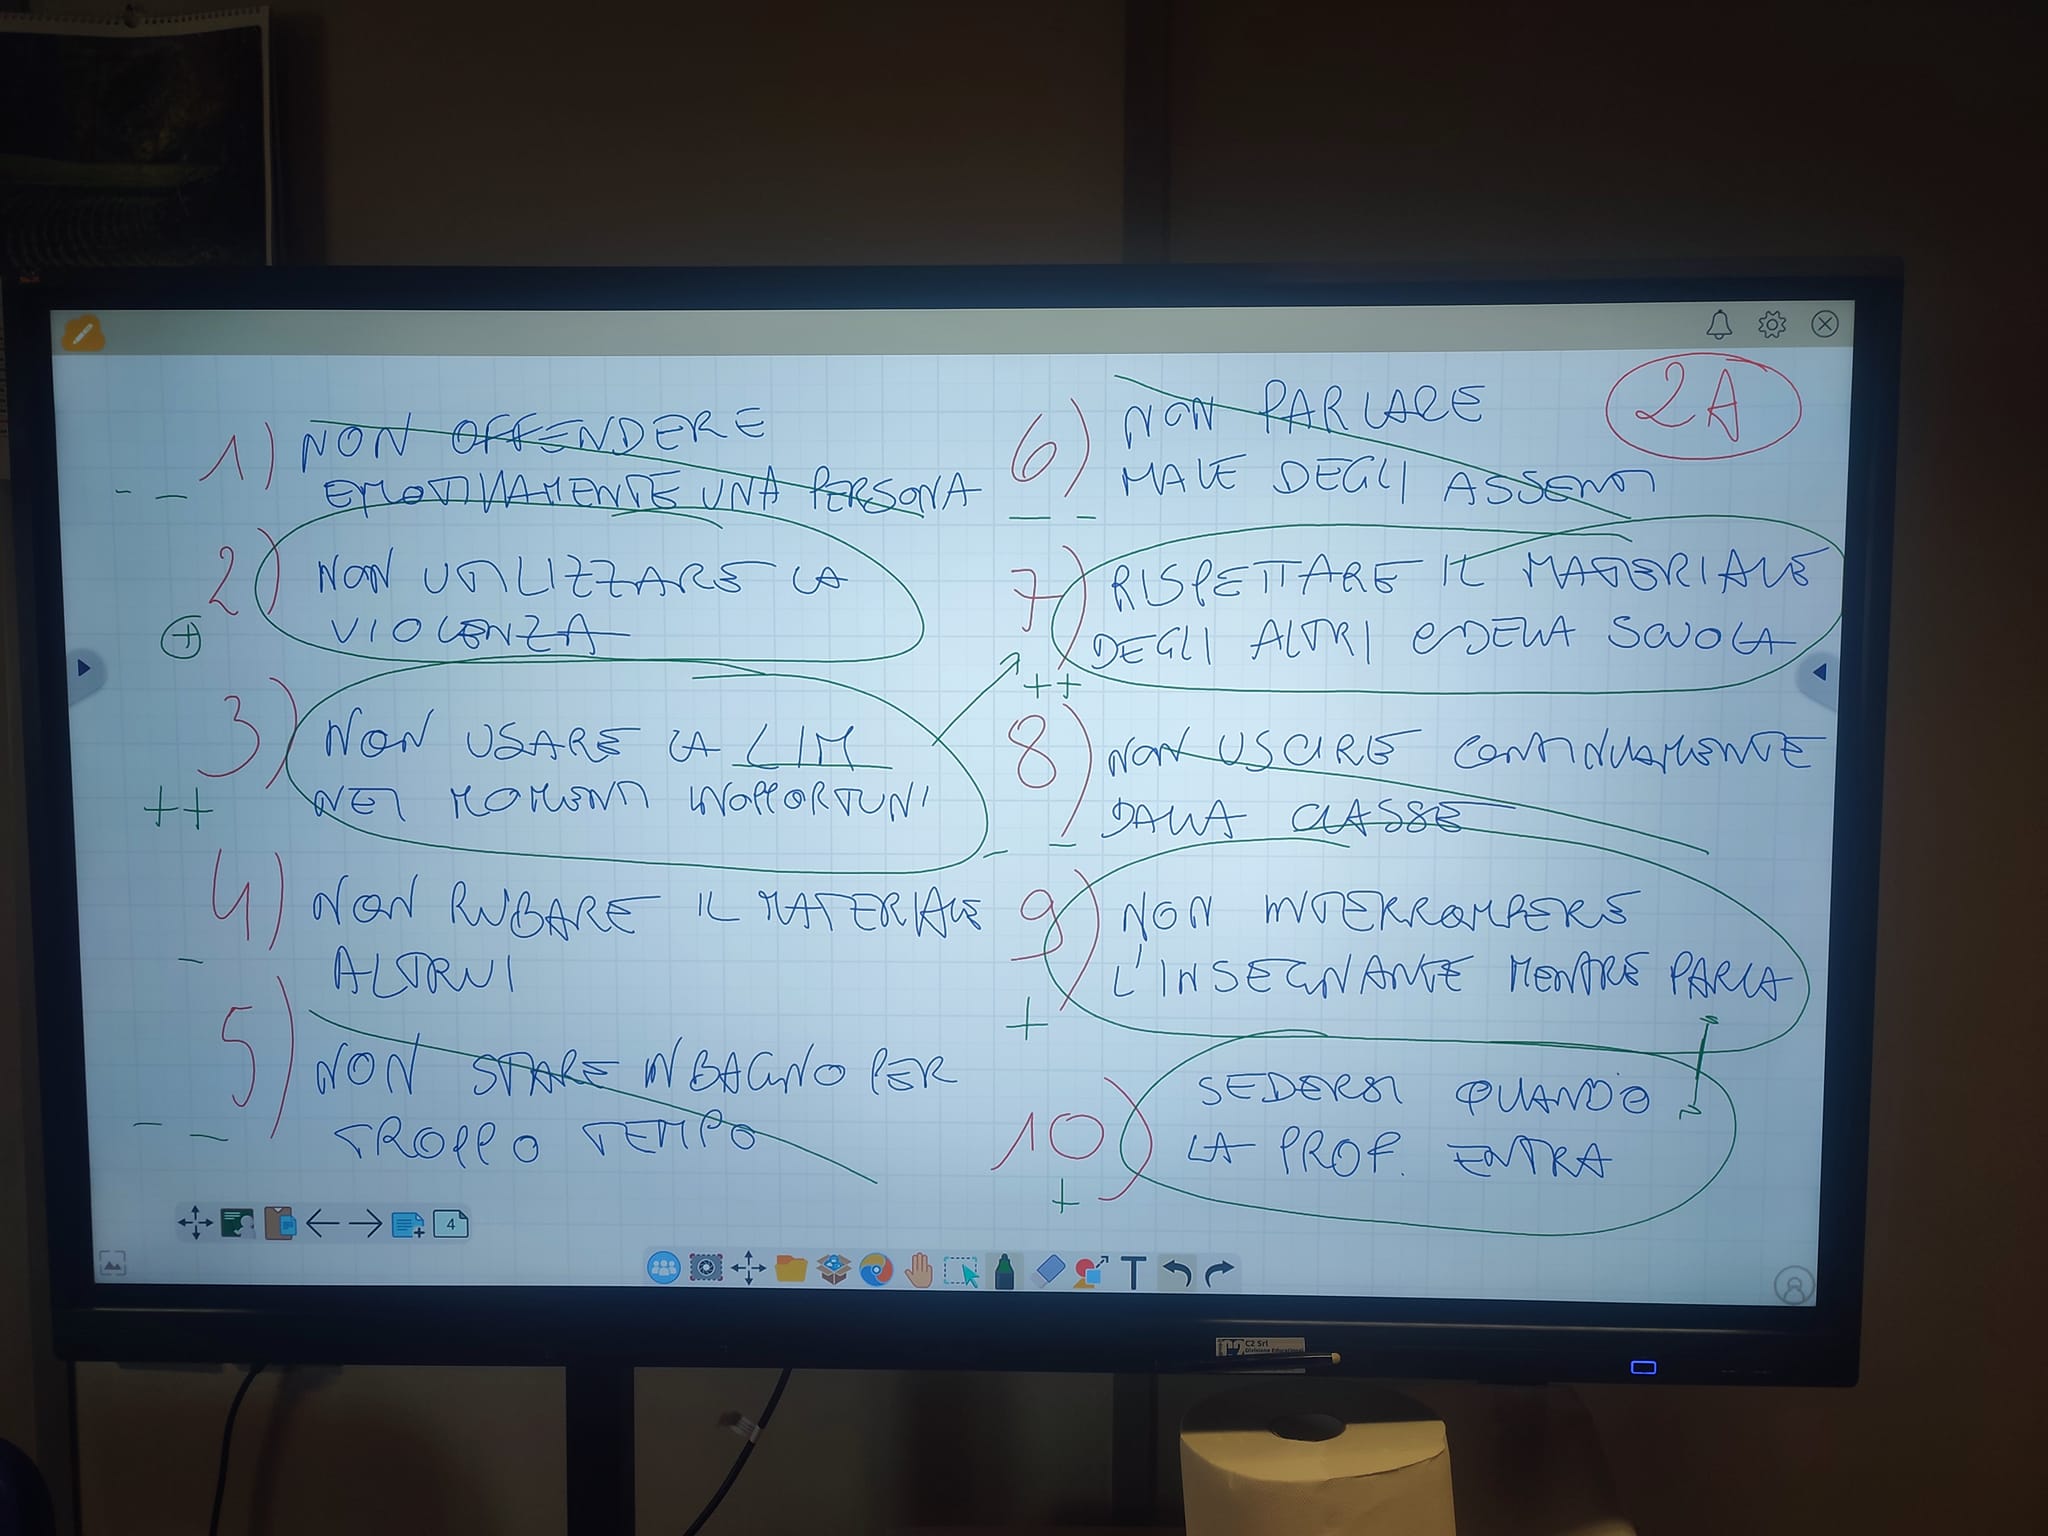 2A
1) NON OFFENDERE
EMOTIVAMENTE UNA PERSONA
- -
2) NON UTILIZZARE LA
VIOLENZA
+
3) NON USARE LA LIM
NEI MOMENTI INOPPORTUNI
++
4) NON RUBARE IL MATERIALE
ALTRUI
-
5) NON STARE IN BAGNO PER
TROPPO TEMPO
- -
6) NON PARLARE
MALE DEGLI ASSENTI
- -
7) RISPETTARE IL MATERIALE
DEGLI ALTRI E DELLA SCUOLA
++
8) NON USCIRE CONTINUAMENTE
DALLA CLASSE
- -
9) NON INTERROMPERE
L'INSEGNANTE MENTRE PARLA
+
10) SEDERSI QUANDO
LA PROF. ENTRA
+
4
T
C2 Srl